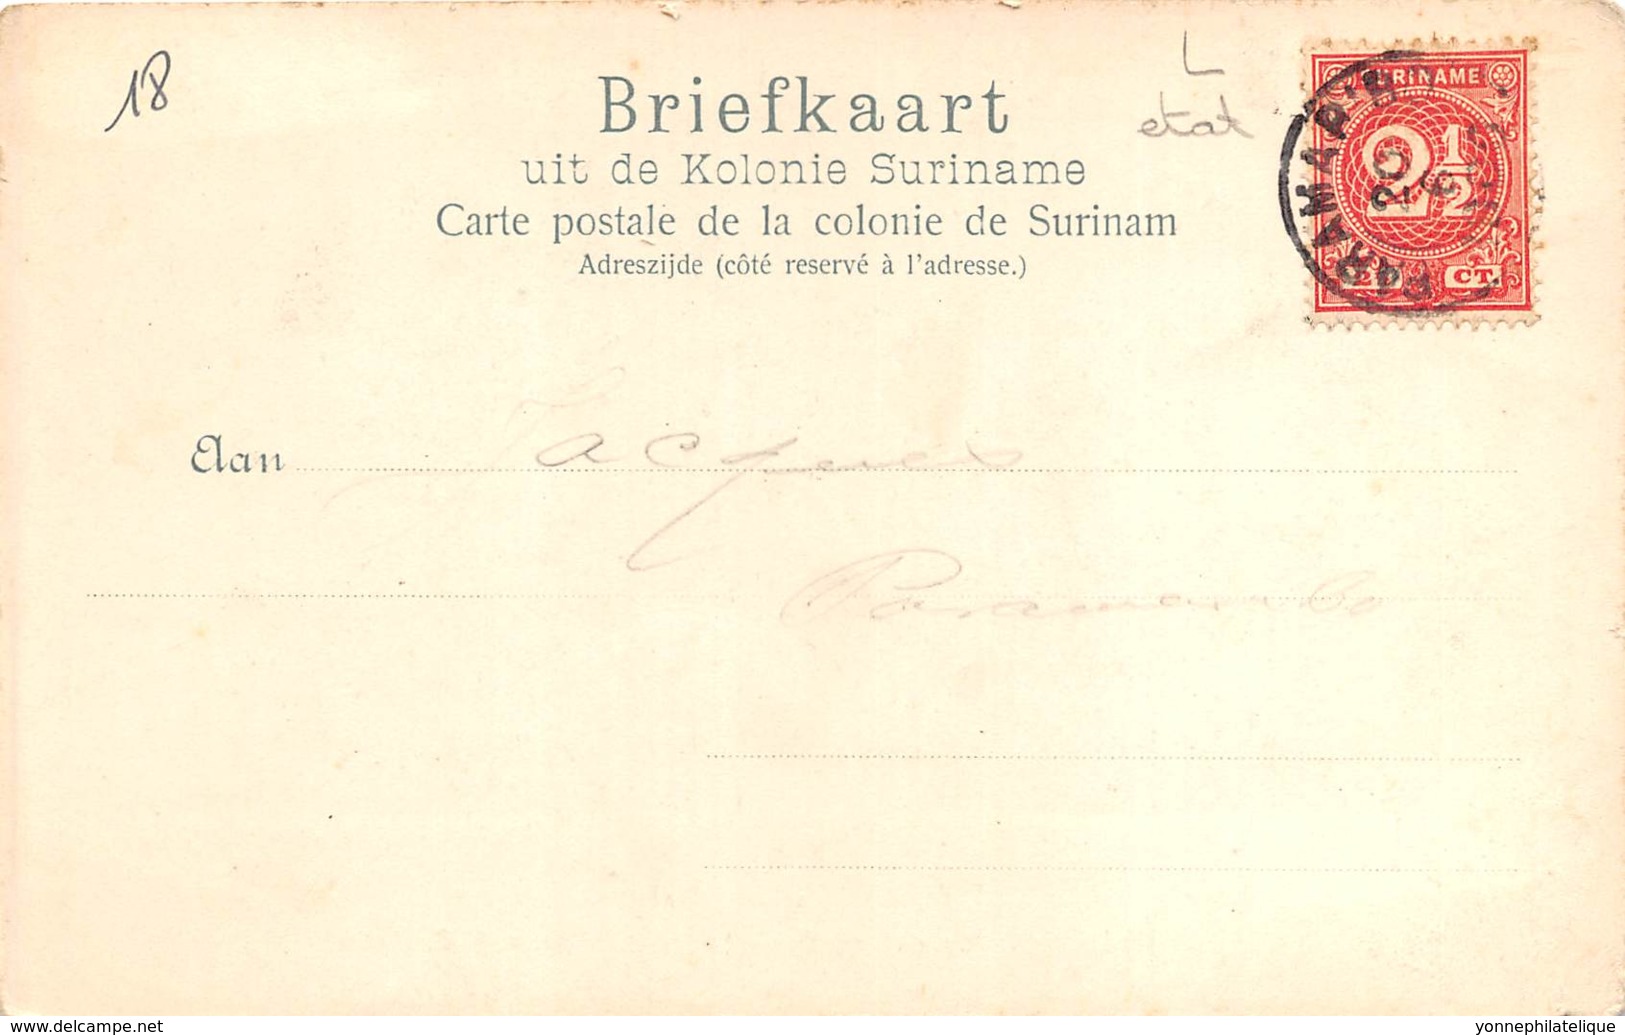 18
L
etat
Briefkaart
uit de Kolonie Suriname
Carte postale de la colonie de Surinam
Adreszijde (côté reservé à l'adresse.)
SURINAME
2½
CT.
Aan Jacques
Paramaribo
www.delcampe.net
yonnephilatelique